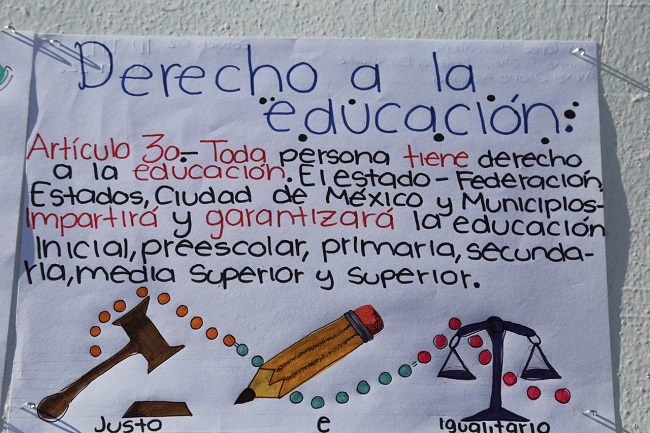 Derecho a la
educación:
Artículo 3o.- Toda persona tiene derecho
a la educación. El estado - Federación,
Estados, Ciudad de México y Municipios-
Impartirá y garantizará la educación
Inicial, preescolar, primaria, secunda-
ria, media superior y superior.
Justo e igualitario